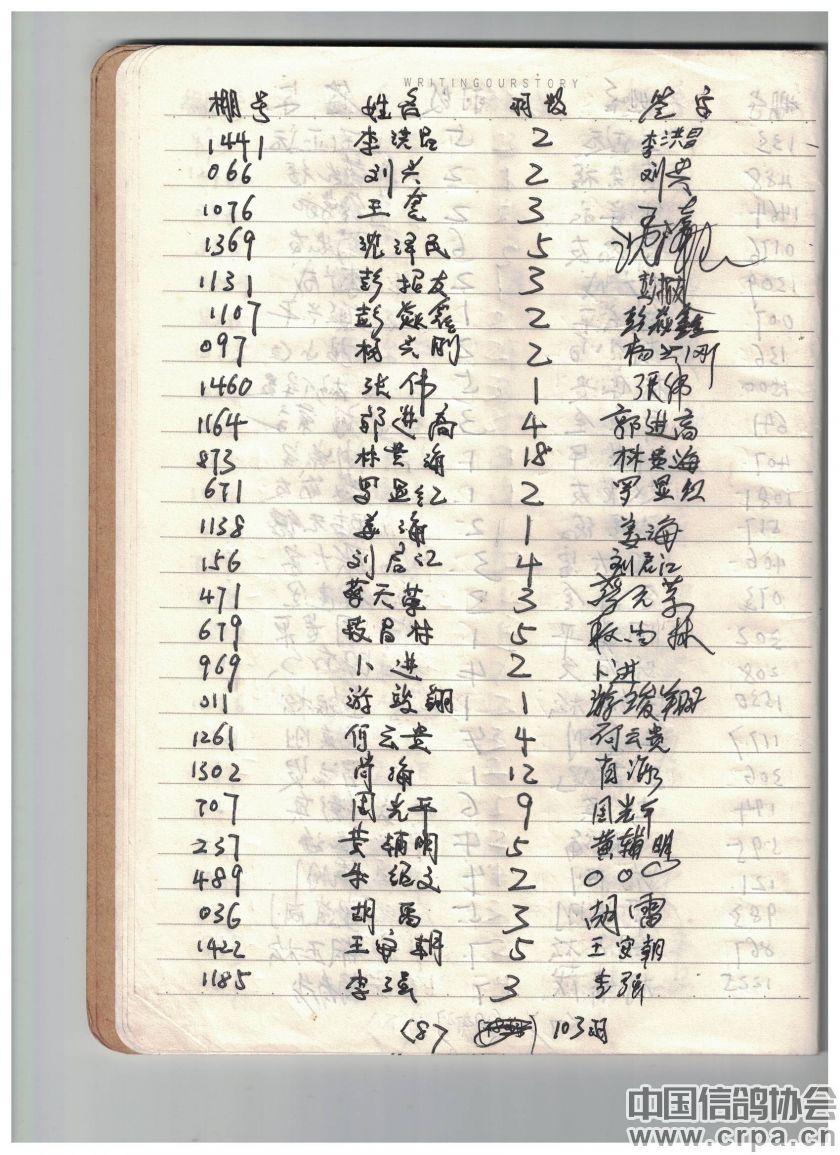 WRITINGOURSTORY
棚号 姓名 羽数 签字
1441 李洪昌 2 李洪昌
066 刘兴 2 刘兴
1076 王奎 3
1369 沈泽民 5
1131 彭招友 3 彭招友
1107 彭焱鑫 2 彭焱鑫
097 杨兴刚 2 杨兴刚
1460 张伟 1 张伟
1164 郭进高 4 郭进高
873 林贵海 18 林贵海
671 罗显红 2 罗显红
1138 姜海 1 姜海
156 刘启江 4 刘启江
471 蔡天荣 3 蔡天荣
679 昌林 5
969 卜进 2 卜进
011 游骏翔 1 游骏翔
1261 何云贵 4 何云贵
1302 12
707 周光平 9 周光平
237 黄辅明 5 黄辅明
489 朱绍文 2 〇〇〇
036 胡雷 3 胡雷
1422 王安朝 5 王安朝
1185 李强 3 李强
(8) 103羽
中国信鸽协会
www.crpa.cn